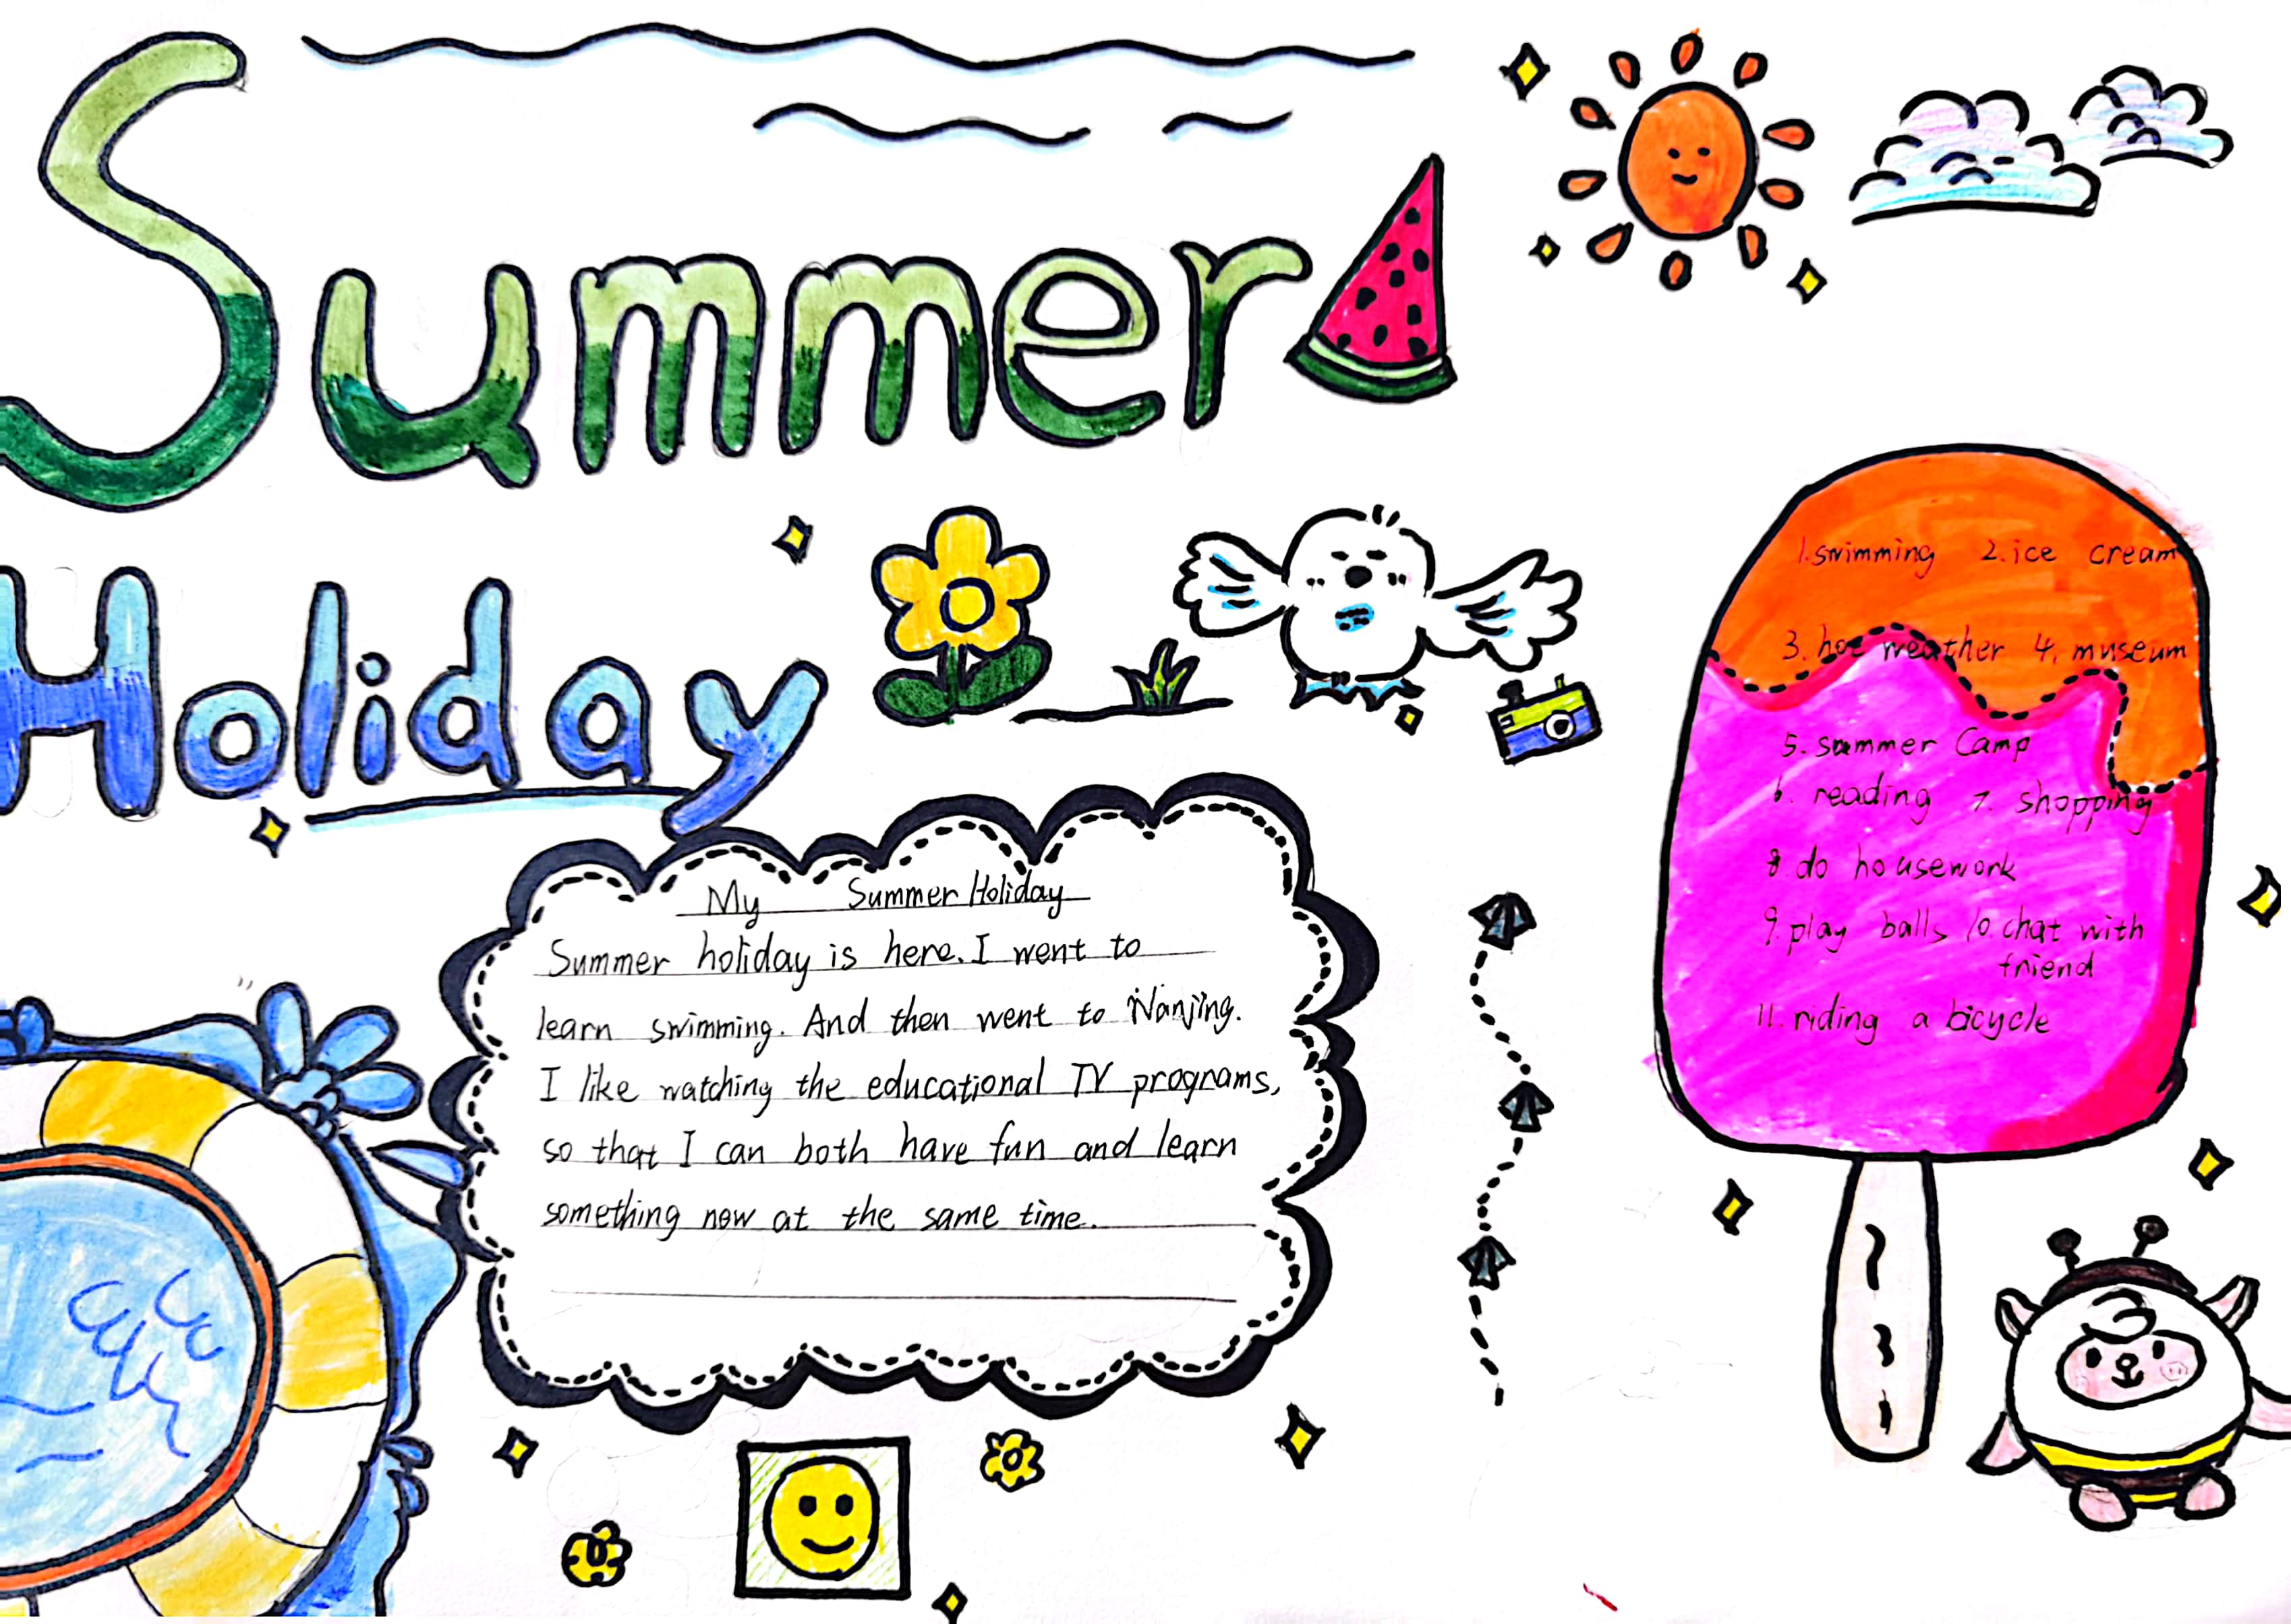 Summer
Holiday
My Summer Holiday
Summer holiday is here. I went to
learn swimming. And then went to Nanjing.
I like watching the educational TV programs,
so that I can both have fun and learn
something new at the same time.
1. swimming 2. ice cream
3. hot weather 4. museum
5. summer Camp
6. reading 7. shopping
8 do housework
9. play balls 10. chat with
friend
11. riding a bicycle